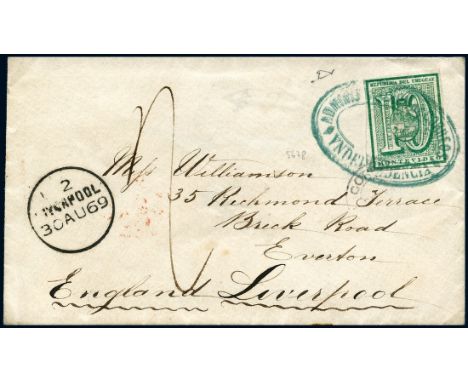 REPUBLICA DEL URUGUAY
10
MONTEVIDEO
2
LIVERPOOL
30AU69
5678
Miss Williamson
35 Richmond Terrace
Breck Road
Everton
England Liverpool